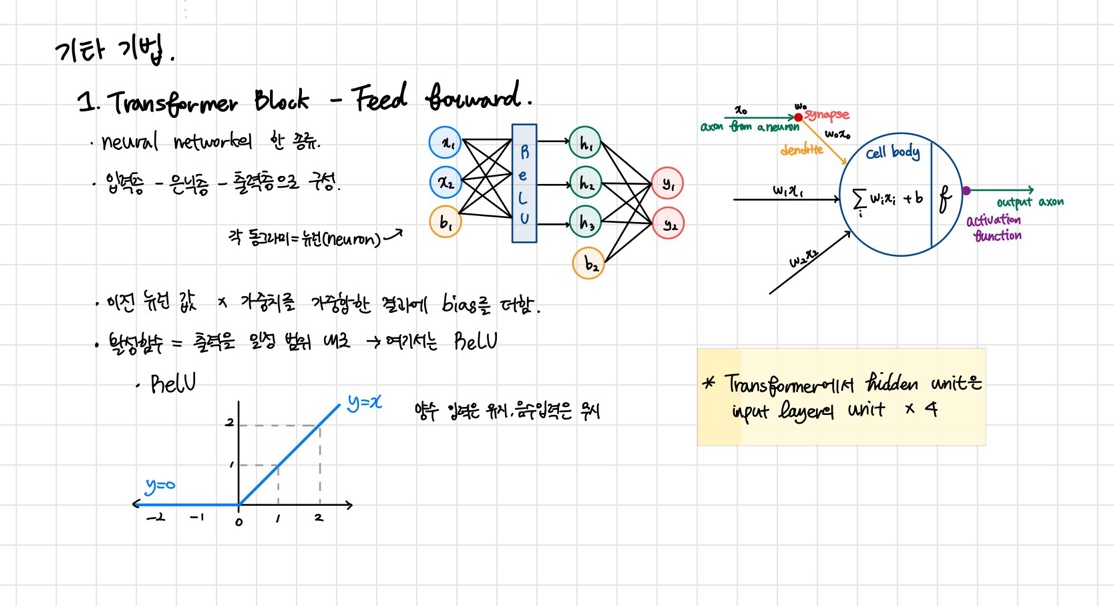 기타 기법.
1. Transformer Block - Feed forward.
· neural network의 한 종류.
· 입력층 - 은닉층 - 출력층으로 구성.
각 동그라미 = 뉴런(neuron) →
x₁
x₂
b₁
ReLU
h₁
h₂
h₃
b₂
y₁
y₂
x₀
w₀
synapse
axon from a neuron
w₀x₀
dendrite
cell body
w₁x₁
∑ wᵢxᵢ + b
i
f
output axon
activation
function
w₂x₂
· 이전 뉴런 값 x 가중치를 가중합한 결과에 bias를 더함.
· 활성함수 = 출력을 일정 범위 내로 → 여기서는 ReLU
· ReLU
y=x
양수 입력은 유지, 음수입력은 무시
2
1
y=0
-2 -1 0 1 2
* Transformer에서 hidden unit은
input layer의 unit x 4